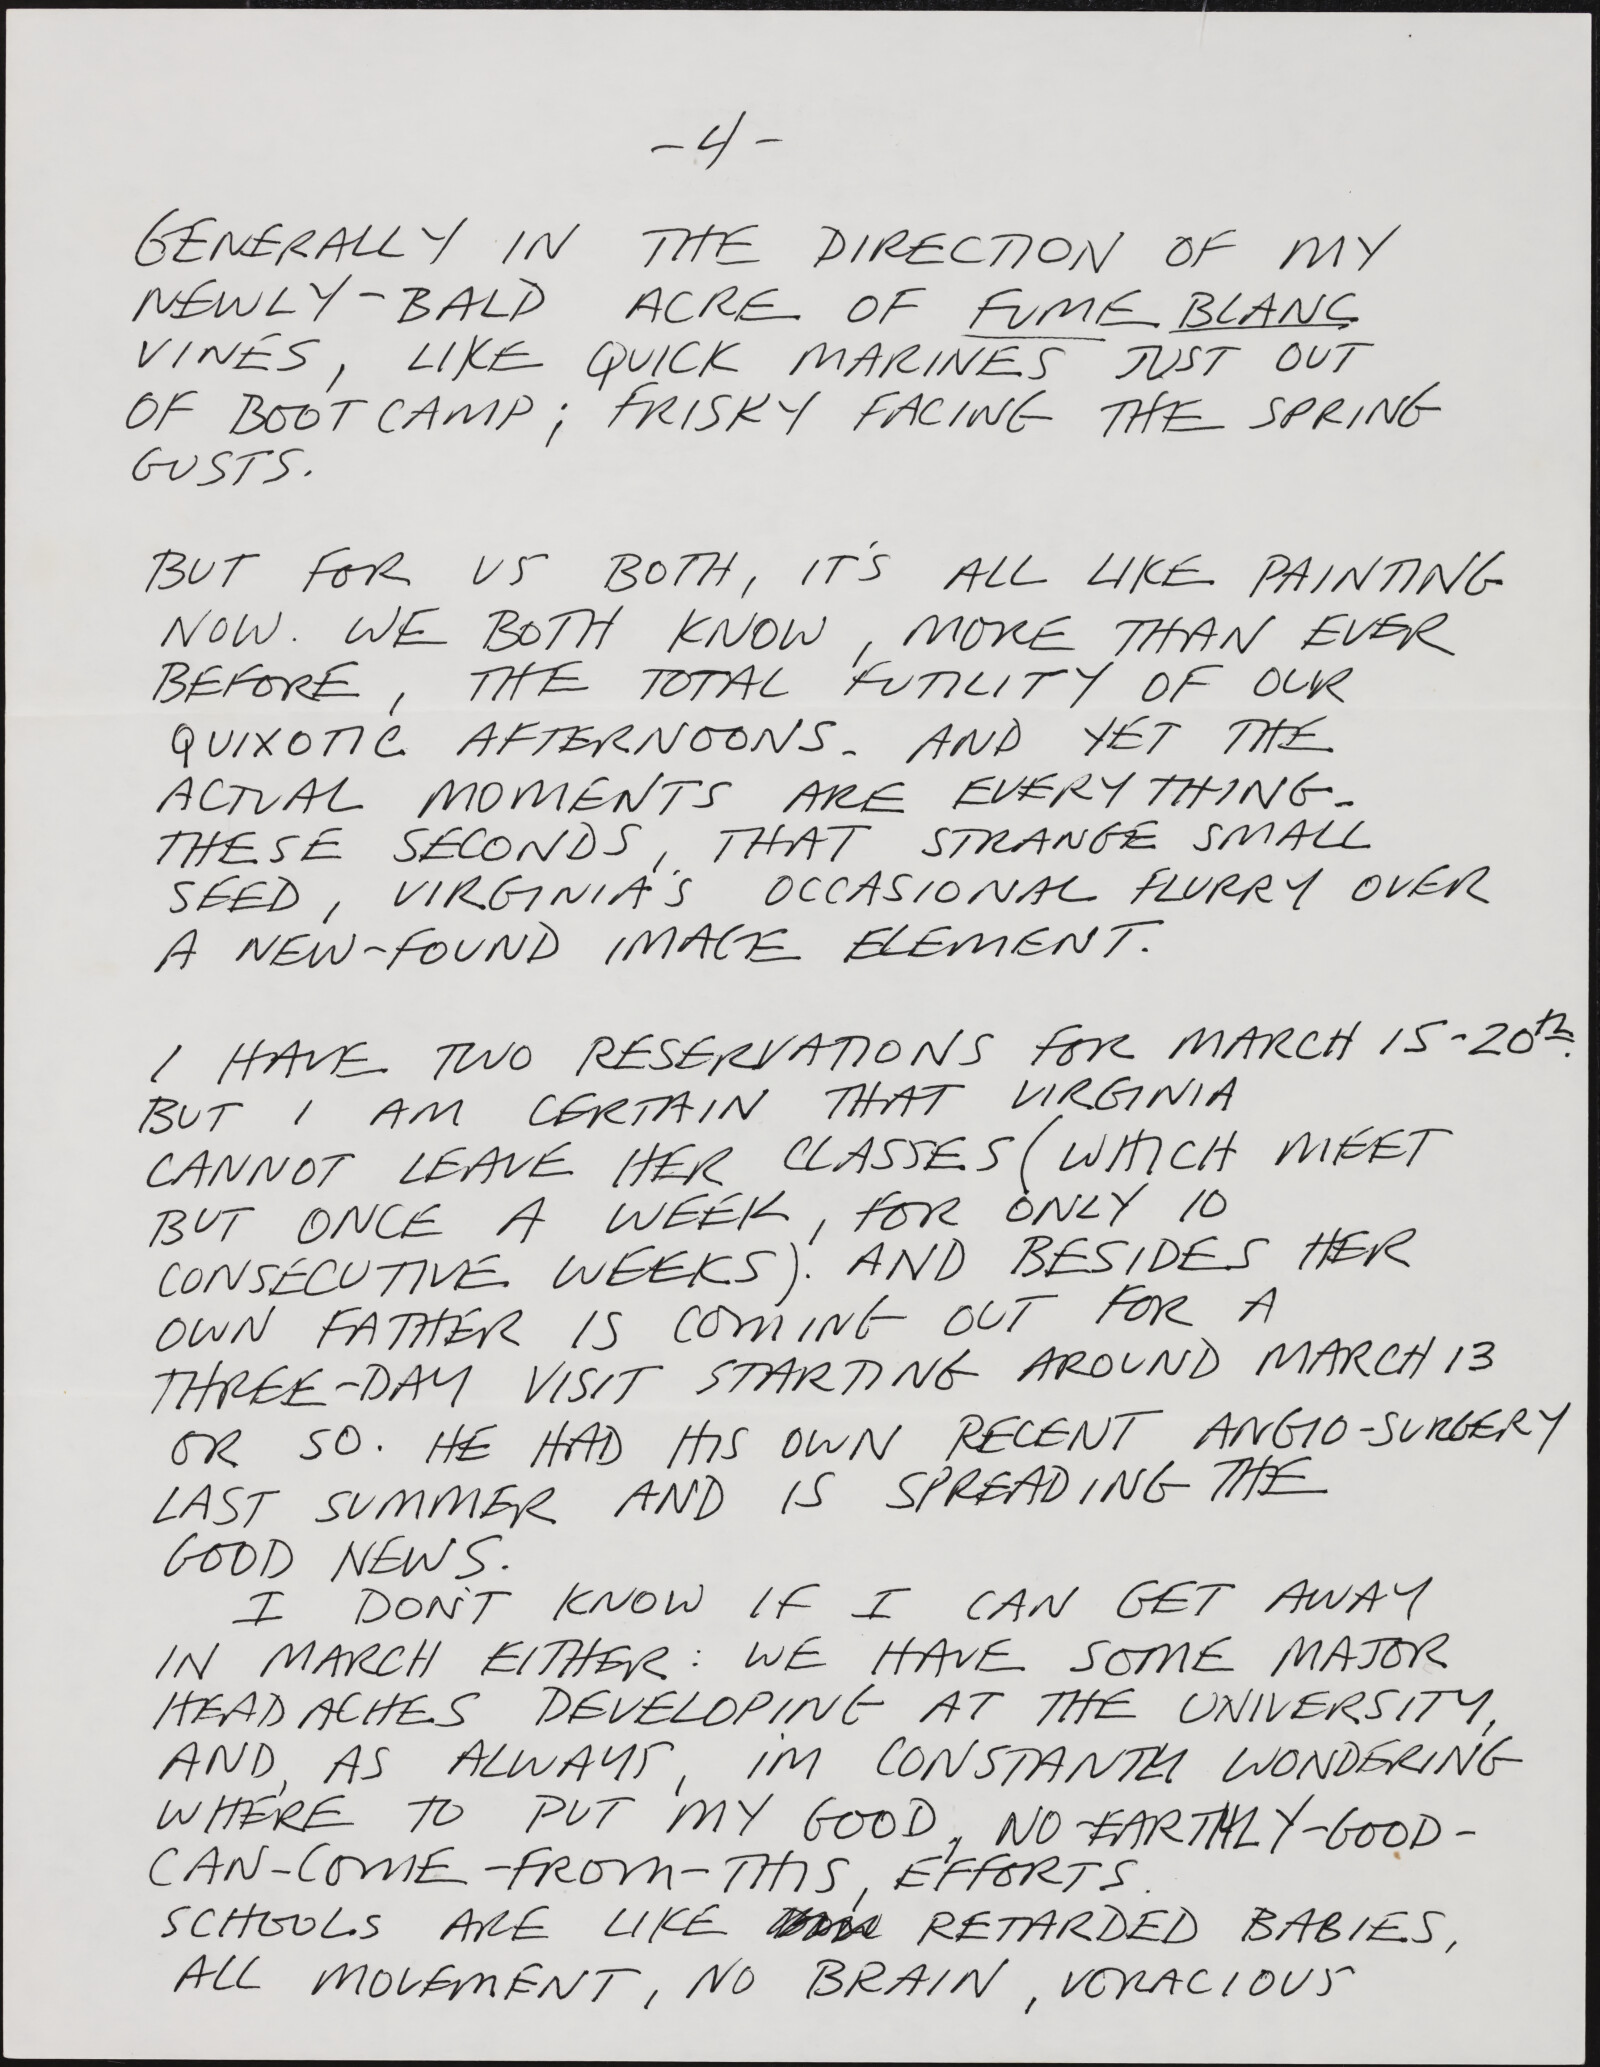 -4-
GENERALLY IN THE DIRECTION OF MY
NEWLY-BALD ACRE OF FUME BLANC
VINES, LIKE QUICK MARINES JUST OUT
OF BOOT CAMP; FRISKY FACING THE SPRING
GUSTS.
BUT FOR US BOTH, IT'S ALL LIKE PAINTING
NOW. WE BOTH KNOW, MORE THAN EVER
BEFORE, THE TOTAL FUTILITY OF OUR
QUIXOTIC AFTERNOONS. AND YET THE
ACTUAL MOMENTS ARE EVERYTHING.
THESE SECONDS, THAT STRANGE SMALL
SEED, VIRGINIA'S OCCASIONAL FLURRY OVER
A NEW-FOUND IMAGE ELEMENT.
I HAVE TWO RESERVATIONS FOR MARCH 15-20th.
BUT I AM CERTAIN THAT VIRGINIA
CANNOT LEAVE HER CLASSES (WHICH MEET
BUT ONCE A WEEK, FOR ONLY 10
CONSECUTIVE WEEKS). AND BESIDES HER
OWN FATHER IS COMING OUT FOR A
THREE-DAY VISIT STARTING AROUND MARCH 13
OR SO. HE HAD HIS OWN RECENT ANGIO-SURGERY
LAST SUMMER AND IS SPREADING THE
GOOD NEWS.
I DON'T KNOW IF I CAN GET AWAY
IN MARCH EITHER: WE HAVE SOME MAJOR
HEADACHES DEVELOPING AT THE UNIVERSITY,
AND, AS ALWAYS, I'M CONSTANTLY WONDERING
WHERE TO PUT MY GOOD, NO-EARTHLY-GOOD-
CAN-COME-FROM-THIS, EFFORTS.
SCHOOLS ARE LIKE RETARDED BABIES,
ALL MOVEMENT, NO BRAIN, VORACIOUS